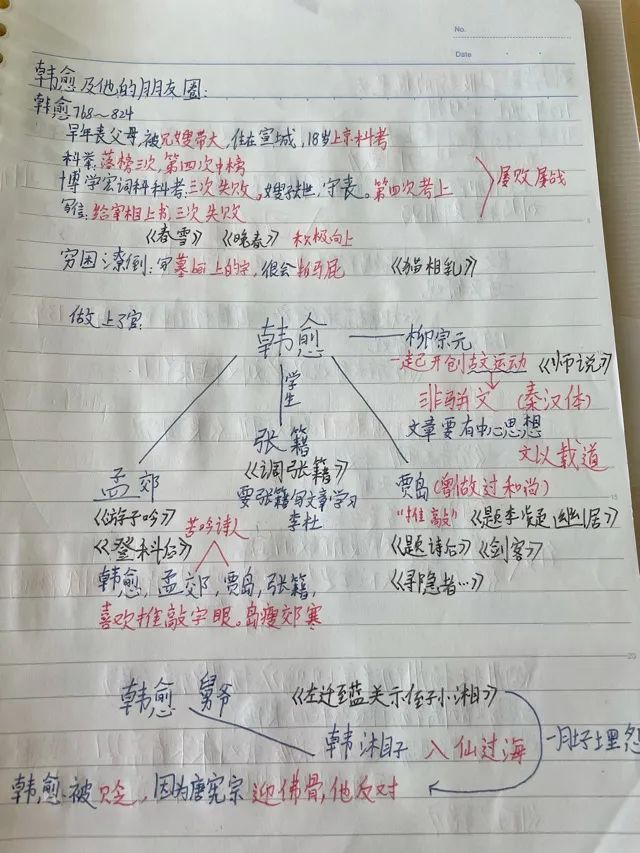 No.
Date
韩愈及他的朋友圈:
韩愈768~824
早年丧父母,被兄嫂带大,住在宣城,18岁上京科考
科举:落榜三次,第四次中榜
博学宏词科科考:三次失败。嫂子去世,守丧。第四次考上
屡败屡战
写信:给宰相上书,三次失败
《春雪》 《晚春》 积极向上
穷困潦倒:写墓碑上的字,很会拍马屁 《猫相乳》
做上了官:
韩愈 —— 柳宗元
一起开创古文运动 《师说》
学生
非骈文 (秦汉体)
文章要有中心思想
文以载道
张籍
《调张籍》
要张籍向文章学习
李杜
孟郊
《游子吟》
《登科后》
苦吟诗人
贾岛(曾做过和尚)
"推敲" 《题李凝幽居》
《题诗后》 《剑客》
《寻隐者…》
韩愈,孟郊,贾岛,张籍,
喜欢推敲字眼。岛瘦郊寒
韩愈 舅爷 《左迁至蓝关示侄孙湘》
韩湘子 八仙过海
一肚子埋怨
韩愈被贬,因为唐宪宗迎佛骨,他反对
15
20